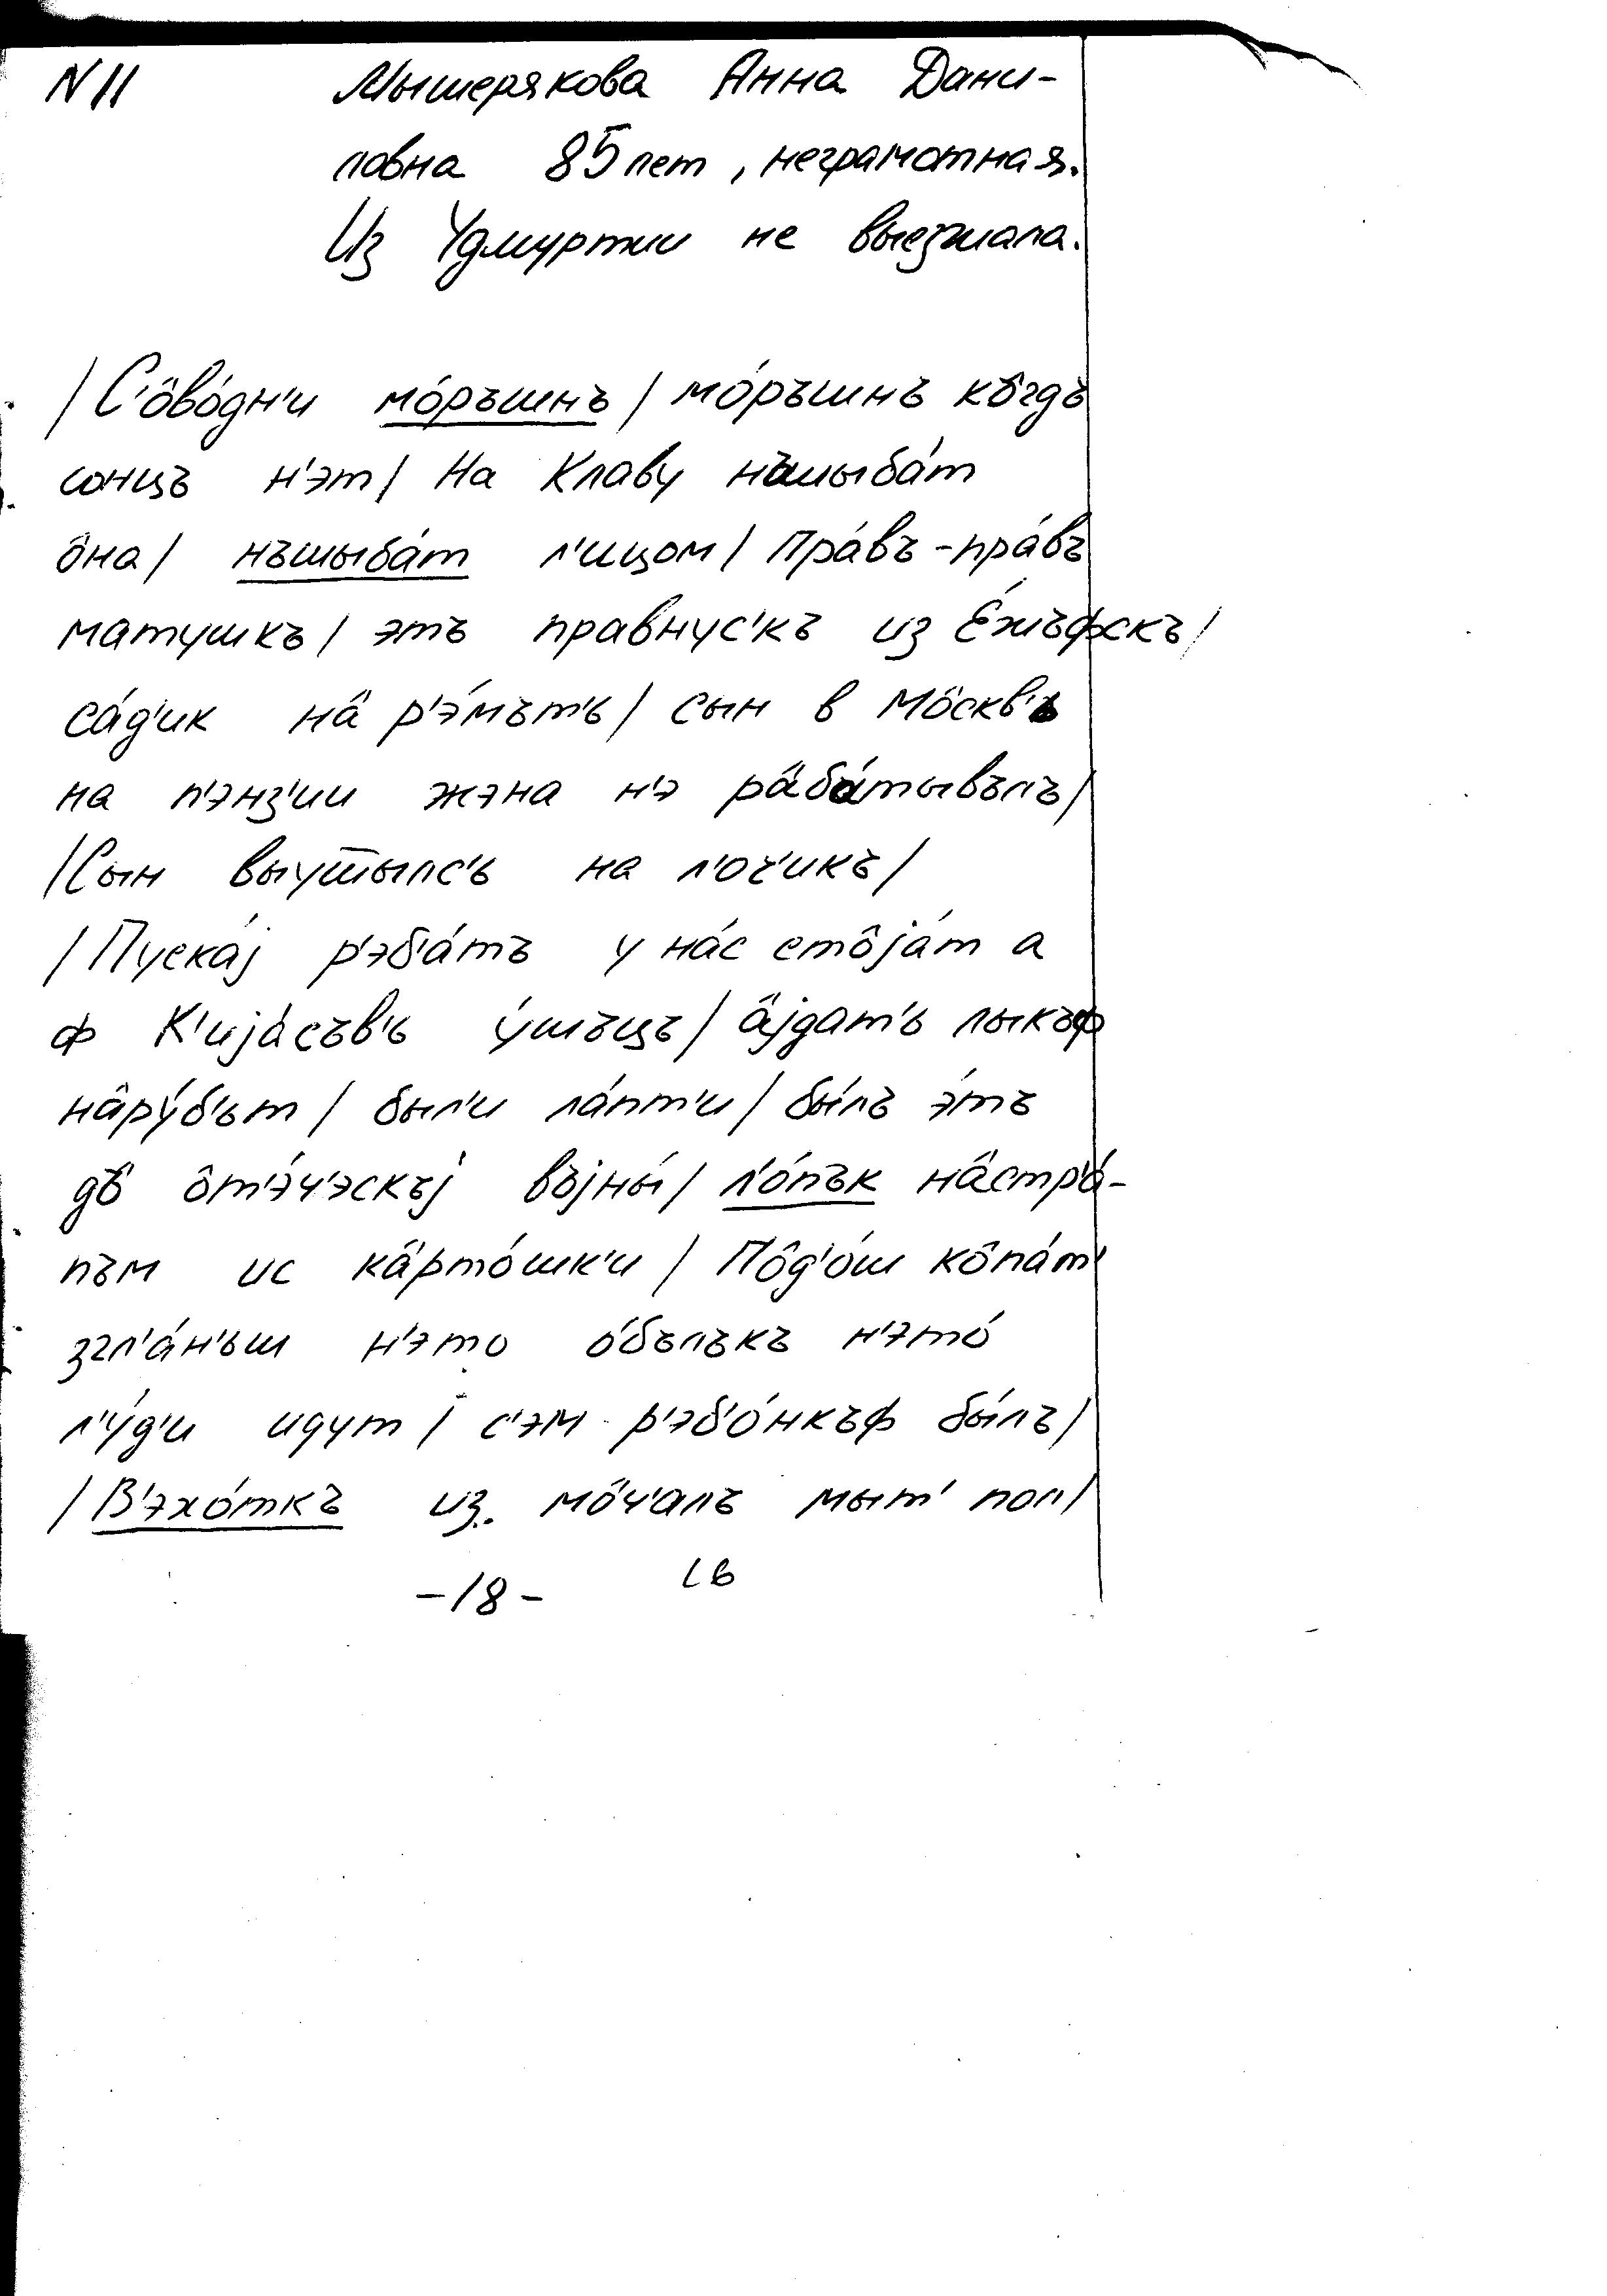 N 11 Мышерякова Анна Дани-
ловна 85 лет, неграмотная.
Из Удмуртии не выезжала.
/С'о̂во́дн'и мо́ръшнъ/ мо́ръшнъ къ̂гдъ
сонцъ н'эт/ На Клаву нъшыба́т
о̂на/ нъшыба́т л'ицом/ Пра́въ-пра́въ
матушкъ/ этъ правнус'къ из Е́жъфскъ/
са́д'ик на̂ р'э́мът'ь/ сын в Мо̂скв'ь
на п'энз'ии жэна н'э ра̂ба́тывълъ/
/Сын вы
на л'оч'икъ/
/Пуска́j р'эб'а́тъ у на́с сто̂jа́т а
ф К'иjа́съв'ь у́шъцъ/ а̂jдат'ь лыкъф
на̂ру́б'ьт/ был'и ла́пт'и/ бы́лъ э́тъ
дъ̂ о̂т'э́ч'эскъj въjны́/ л'о́пък на̂стр'а́-
пъм ис ка̂рто́шк'и/ По̂д'о́ш ко̂па́т'
згл'а́н'ьш н'это о́бълъкъ н'это́
л'у́д'и идут/ с'эм р'эб'о́нкъф бы́лъ/
/В'эхо́ткъ из мо̂ч'алъ мыт' пол/
-18- 16